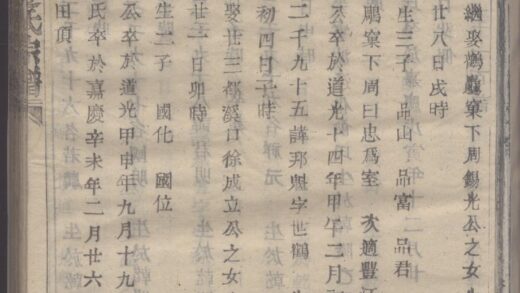 繼娶鸕鶿窠下周錫光公之女生
廿八日戌時
生三子 品山 品富 品君
鸕窠下周曰忠爲室 次適豐江
公卒於道光十四年甲午二月
二千九十五諱邦魁字世鶴
初四日子時
娶廿三都溪口徐成立公之女生
廿三日卯時
生二子 國化 國位
公卒於道光甲申年九月十九
氏卒於嘉慶辛未年二月廿六
田頂
氏宗譜